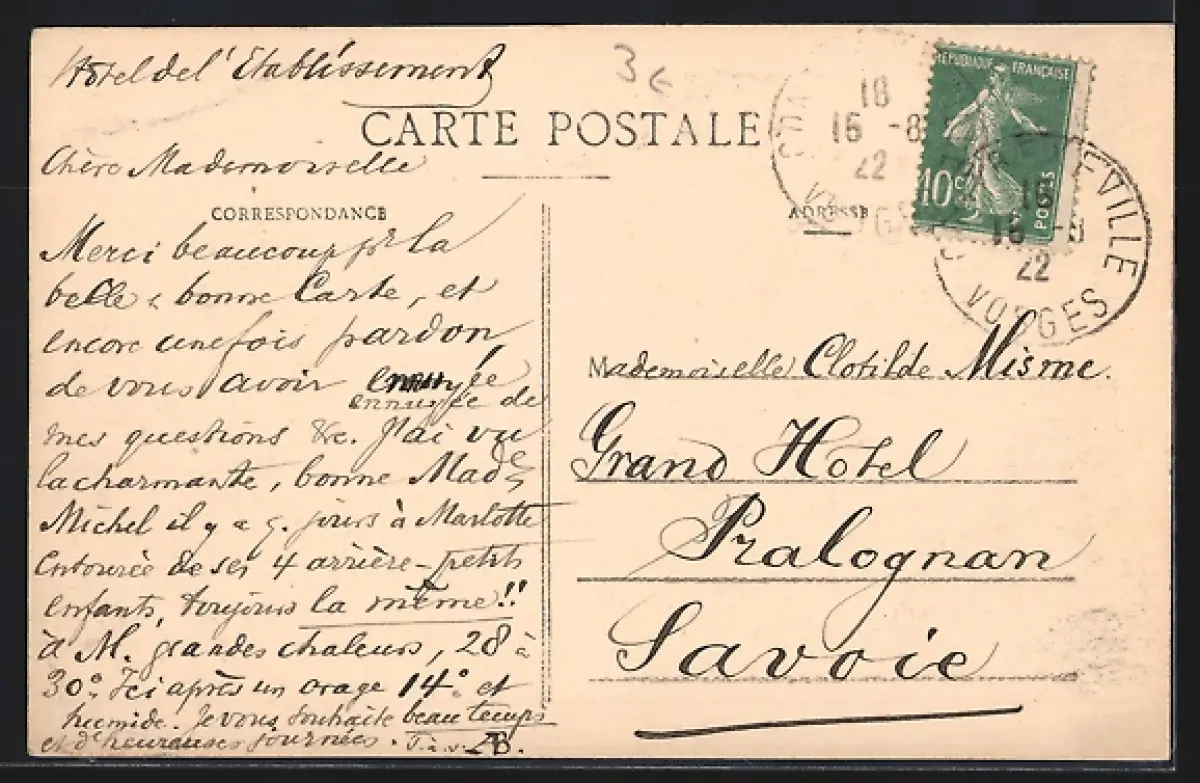 Hotel de l'Etablissement
3€
CARTE POSTALE
Chère Mademoiselle
CORRESPONDANCE
Merci beaucoup pr la
belle & bonne Carte, et
encore une fois pardon,
de vous avoir ennuyée
ennuyée de
mes questions &c. J'ai vu
la charmante, bonne Made
Michel il y a q. jours à Marlotte
Entourée de ses 4 arrière-petits
enfants, toujours la même!!
à M. grandes chaleurs, 28 à
30°. Ici après un orage 14° et
humide. Je vous souhaite beau temps
et d'heureuses journées. T. à v. AB.
RÉPUBLIQUE FRANÇAISE
10c
POSTES
18
16 -8
22
VOSGES
ADRESSE
EVILLE
18
16 -8
22
VOSGES
Mademoiselle Clotilde Misme.
Grand Hotel
Pralognan
Savoie